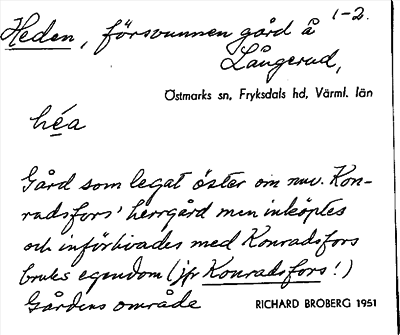 1-2.
Heden, försvunnen gård å
Långerud,
Östmarks sn, Fryksdals hd, Värml. län
héa
Gård som legat öster om nuv. Kon-
radsfors' herrgård men inköptes
och införlivades med Konradsfors
bruks egendom (jfr Konradsfors!)
Gårdens område
RICHARD BROBERG 1951